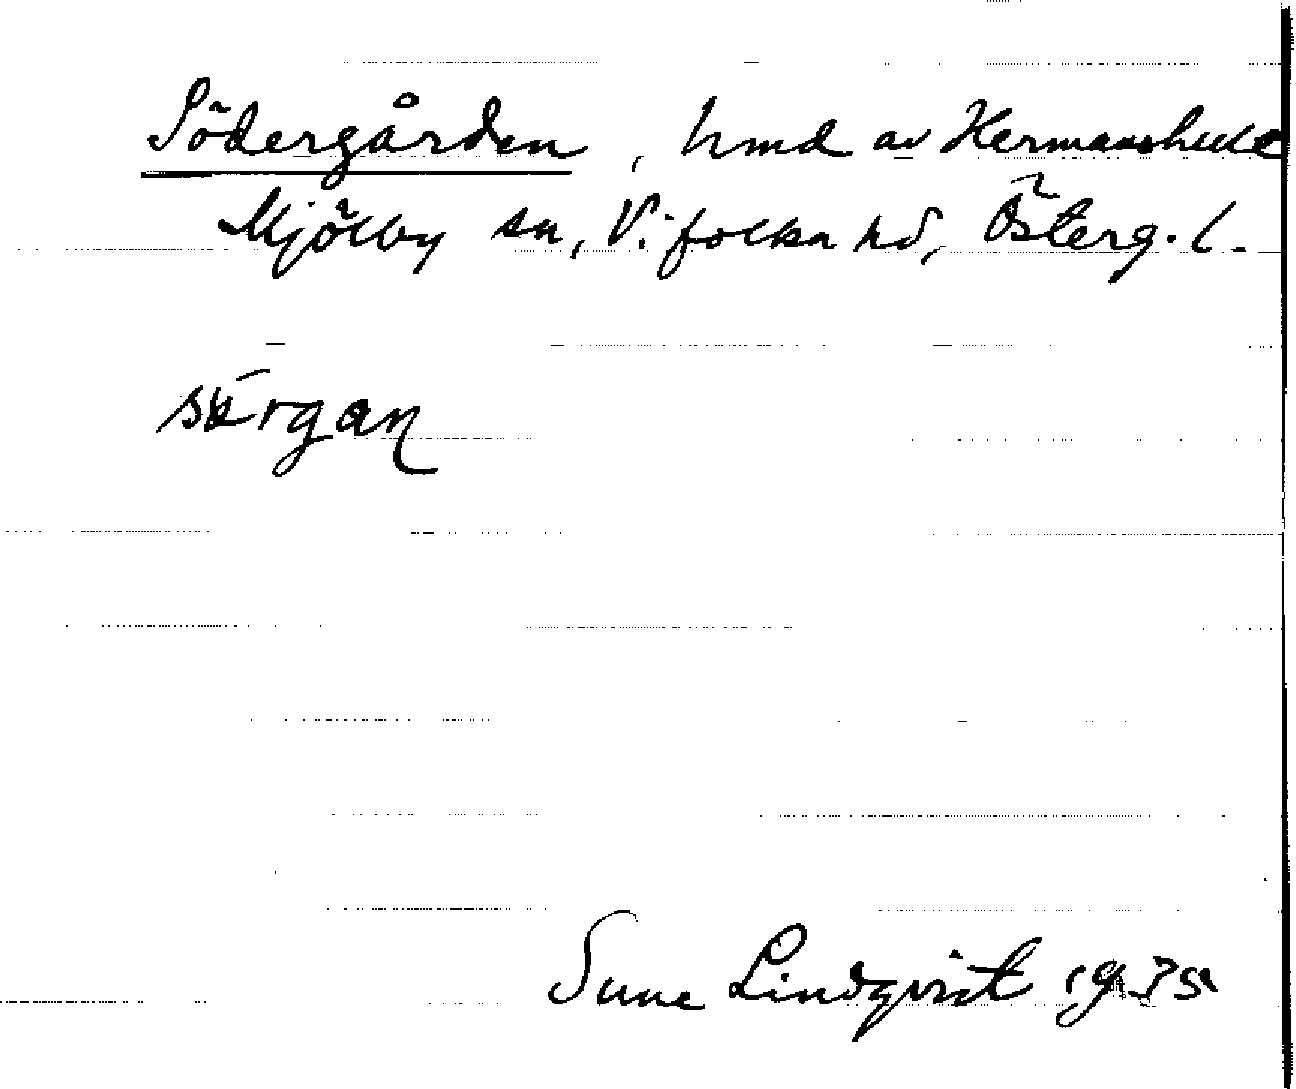 Södergården, hmd av Hermanshult
Mjölby sn, Vifolka hd, Österg. l.
sörgan
Sune Lindqvist 1935